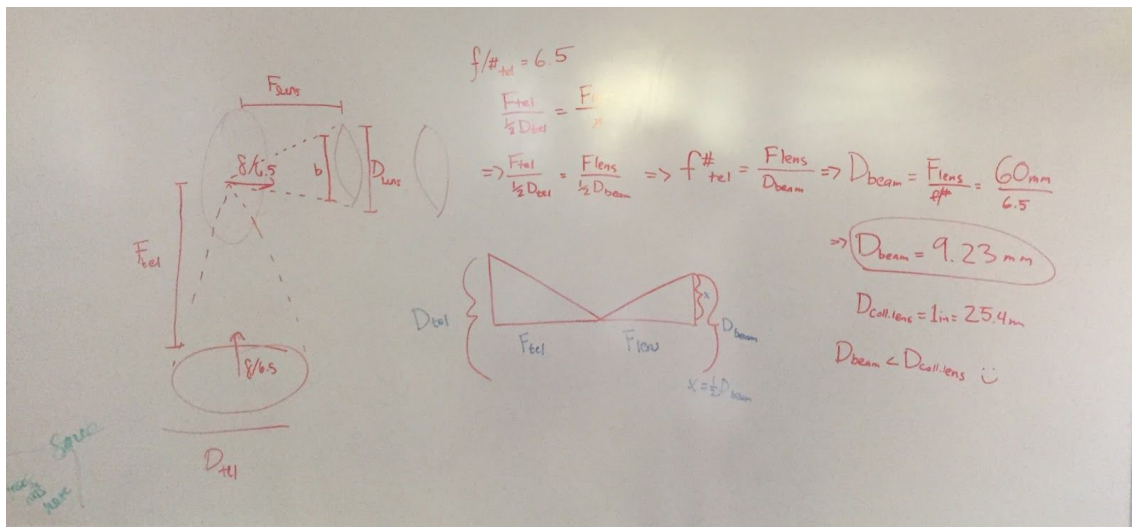 F_lens
f/6.5
b
D_lens
F_tel
f/6.5
D_tel
Save
f/#_tel = 6.5
F_tel / ½ D_tel =
=> F_tel / ½ D_tel = F_lens / ½ D_beam => f#_tel = F_lens / D_beam => D_beam = F_lens / f/# = 60mm / 6.5
=> D_beam = 9.23 mm
D_coll.lens = 1in = 25.4m
D_beam < D_coll.lens :)
D_tel
F_tel
F_lens
x
D_beam
x = ½ D_beam